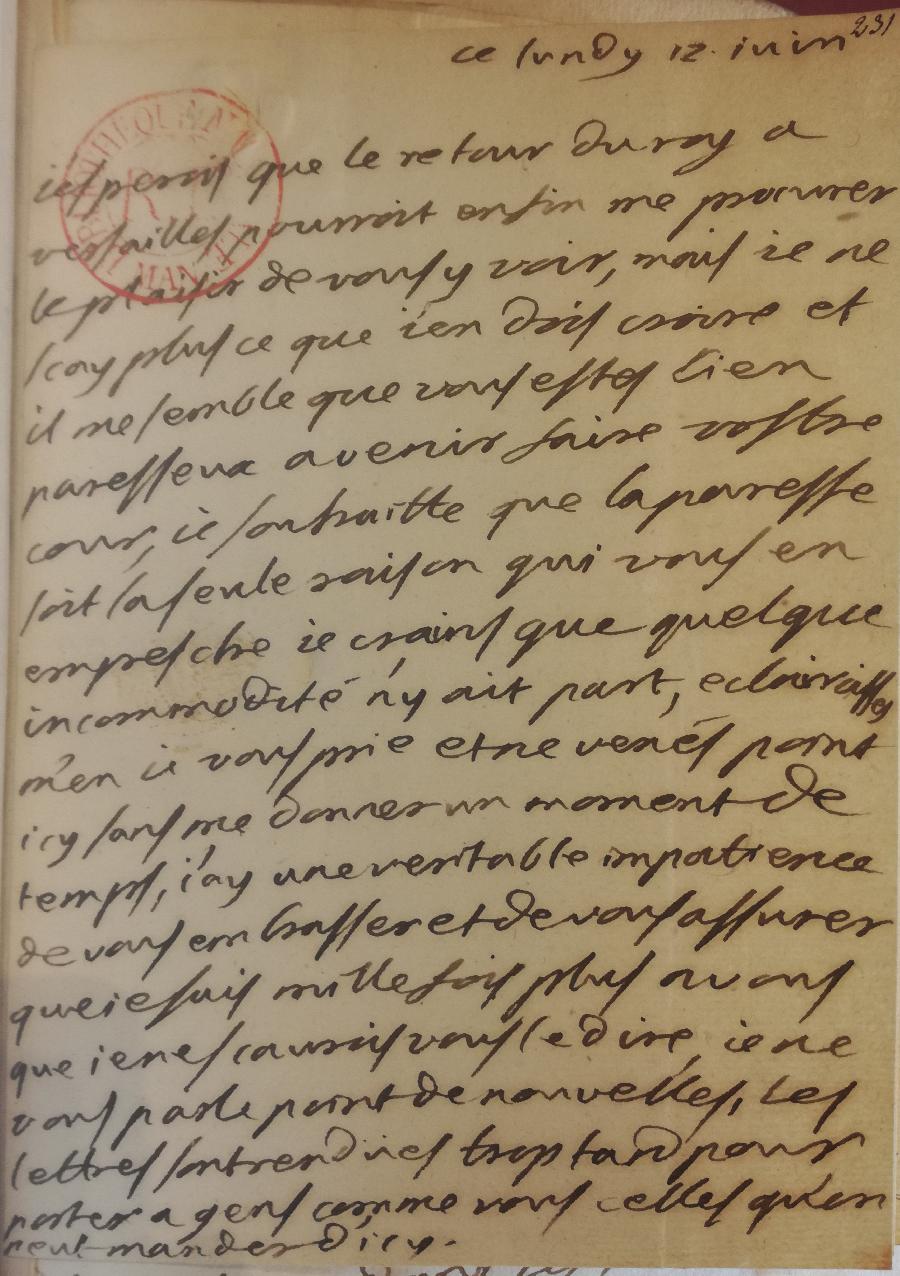 231
ce lundy 12. iuin
iesperois que le retour du roy a
versailles pourroit enfin me procurer
le plaisir de vous y voir, mais ie ne
scay plus ce que i'en dois croire et
il me semble que vous estes bien
paresseux a venir faire vostre
cour, ie souhaitte que la paresse
soit la seule raison qui vous en
empesche ie crains que quelque
incommodité n'y ait part, eclaircisses
m'en ie vous prie et ne venés point
icy sans me donner un moment de
temps, i'ay une veritable impatience
de vous embrasser et de vous assurer
que ie suis mille fois plus a vous
que ie ne scaurois vous le dire, ie ne
vous parle point de nouvelles, les
lettres sont rendues trop tard pour
porter a gens comme vous celles qu'on
peut mander d'icy.